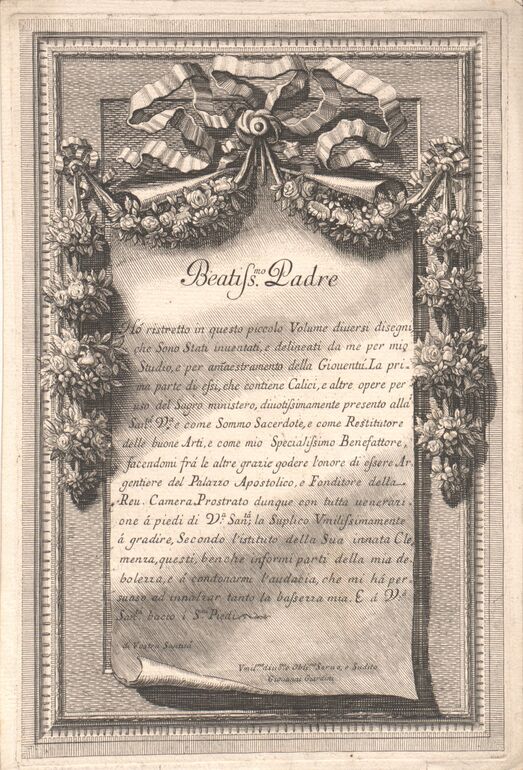 Beatiſs.mo Padre
Hó ristretto in questo piccolo Volume diuersi disegni,
che Sono Stati inuentati, e delineati da me per mio
Studio, e per am̃aestramento della Giouentù. La pri-
ma parte di eſsi, che contiene Calici, e altre opere per
uso del Sagro ministero, diuotiſsimamente presento allá
San.tà V.a e come Sommo Sacerdote, e come Restitutore
delle buone Arti, e come mio Specialiſsimo Benefattore,
facendomi frá le altre grazie godere l'onore di eſsere Ar,
gentiere del Palazzo Apostolico, e Fonditore della
Reu. Camera. Prostrato dunque con tutta uenerazi-
one á piedi di V.a San.tá; la Suplico Vmiliſsimamente
á gradire, Secondo l'istituto della Sua innata Cle,
menza, questi, benche informi parti della mia de,
bolezza, e á condonarmi l'audacia, che mi há per,
suaso ad innalzar tanto la baſsezza mia. E á V.a
San.tà bacio i S.mi Piedi
di Vostra Santitá
Vmil.mo diuot.mo Obli.mo Seruo, e Sudito
Giouanni Giardini